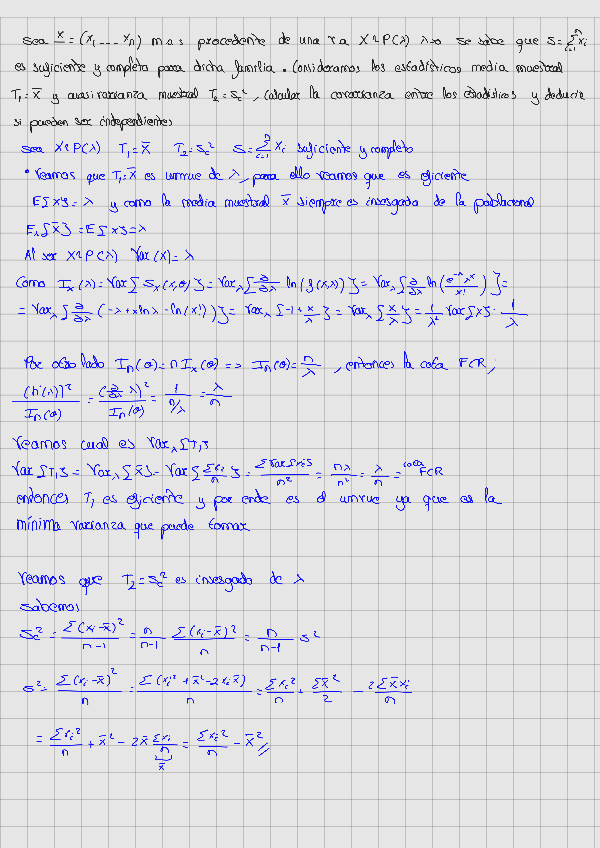 Sea X = (x₁ ... xₙ) m.a.s procedente de una r.a X~P(λ) λ>0 se sabe que S = Σⁿᵢ₌₁ xᵢ
es suficiente y completo para dicha familia. Consideramos los estadísticos media muestral
T₁ = X̄ y cuasivarianza muestral T₂ = Sc², calcular la covarianza entre los estadísticos y deducir
si pueden ser independientes
Sea X~P(λ) T₁ = X̄ T₂ = Sc² S = Σⁿᵢ₌₁ xᵢ suficiente y completo
• Veamos que T₁ = X̄ es umvue de λ, para ello veamos que es eficiente
E[X] = λ y como la media muestral X̄ siempre es insesgado de la poblacional
E_λ[X̄] = E[X] = λ
Al ser X~P(λ) Var(X) = λ
Como I_x(λ) = Var[S_x(x,θ)] = Var_λ[∂/∂λ ln(f(x,λ))] = Var_λ[∂/∂λ ln(e^-λ λ^x / x!)] =
= Var_λ[∂/∂λ (-λ + x ln λ - ln(x!))] = Var_λ[-1 + x/λ] = Var_λ[x/λ] = 1/λ² Var[x] = 1/λ
Por otro lado Iₙ(θ) = n I_x(θ) => Iₙ(θ) = n/λ, entonces la cota FCR;
(h'(λ))² / Iₙ(θ) = (∂/∂λ λ)² / Iₙ(θ) = 1 / (n/λ) = λ/n
Veamos cual es Var_λ[T₁]
Var[T₁] = Var_λ[X̄] = Var[Σxᵢ/n] = ΣVar[xᵢ]/n² = nλ/n² = λ/n = cota FCR
entonces T₁ es eficiente y por ende es el umvue ya que es la
mínima varianza que puede tomar
Veamos que T₂ = Sc² es insesgado de λ
Sabemos
Sc² = Σ(xᵢ - x̄)²/(n-1) = n/(n-1) Σ(xᵢ - x̄)²/n = n/(n-1) S²
S² = Σ(xᵢ - x̄)²/n = Σ(xᵢ² + x̄² - 2xᵢx̄)/n = Σxᵢ²/n + Σx̄²/2 - 2Σx̄xᵢ/n
= Σxᵢ²/n + x̄² - 2x̄ Σxᵢ/n = Σxᵢ²/n - x̄² //
x̄